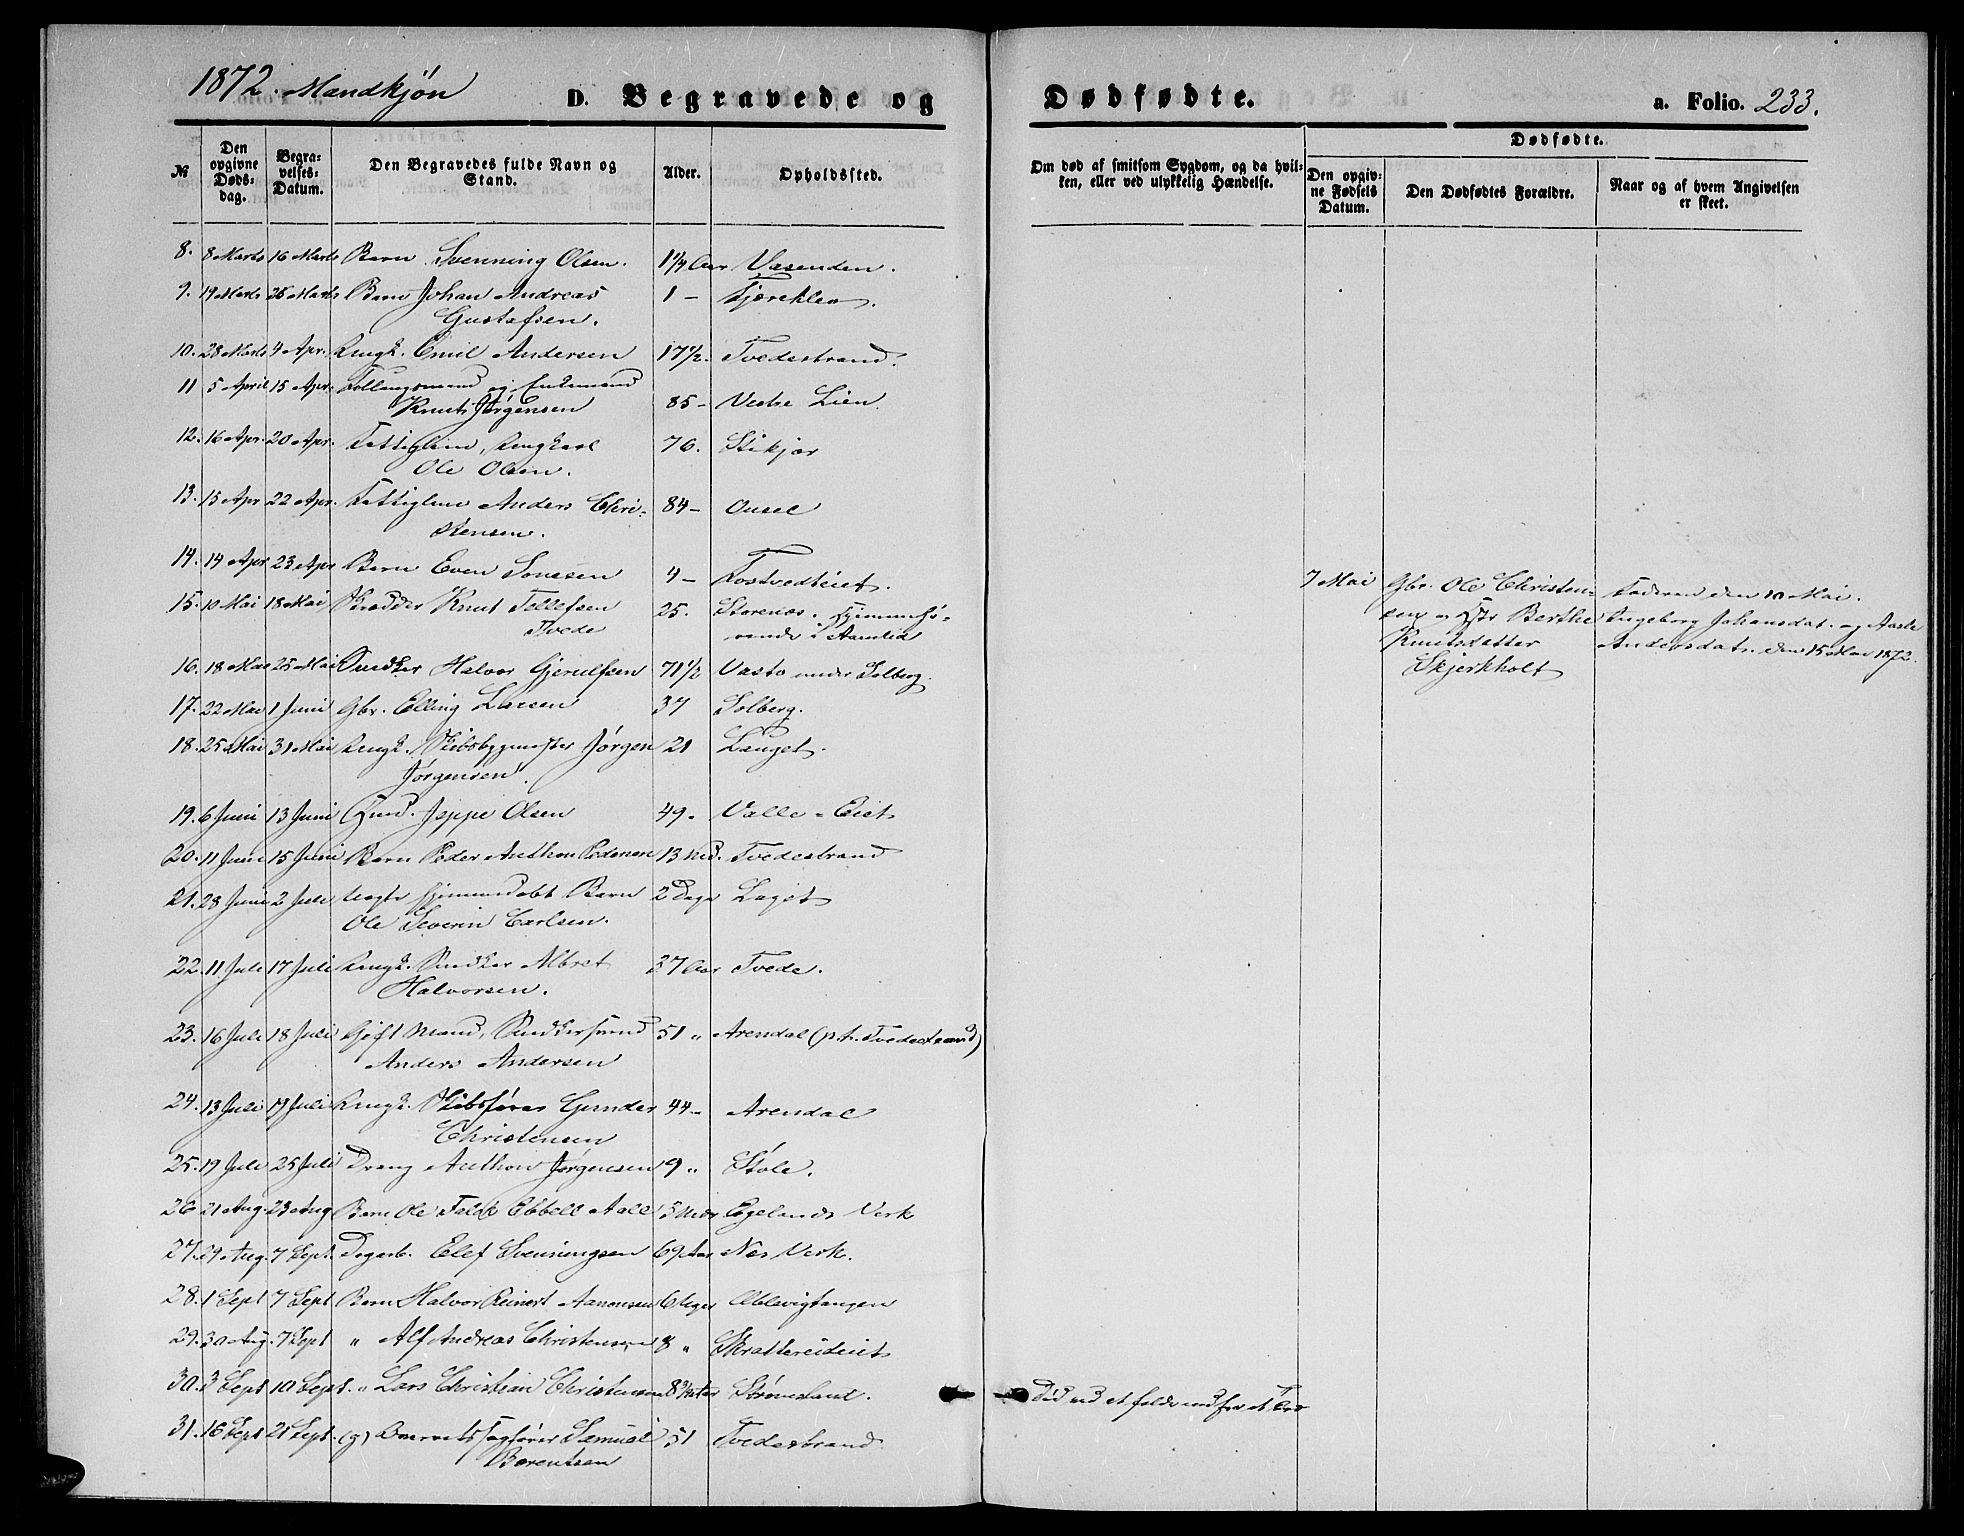 1872. Mandkjøn
D. Begravede og Dødfødte.
a. Folio. 233.
№ Den opgivne Døds-dag. Begra-velses-Datum. Den Begravedes fulde Navn og Stand. Alder. Opholdssted. Om død af smitsom Sygdom, og da hvil-ken, eller ved ulykkelig Hændelse. Dødfødte. Den opgiv-ne Fødsels Datum. Den Dødfødtes Forældre. Naar og af hvem Angivelsen er skeet.
8. 8 Marts 16 Marts Barn Svenning Olsen. 1¼ Aar Væsenden.
9. 19 Marts 26 Marts Barn Johan Andreas 1 – Fjæreklev.
Gustafsen.
10. 28 Marts 4 Apr. Ungk. Emil Andersen 17½. Tvedestrand.
11 5 April 15 Apr. og Enkemand
Knut Jørgensen 85 – Vestre Lien.
12. 16 Apr. 20 Apr. Fattiglem, Ungkarl 76.
Ole Olsen.
13. 15 Apr 22 Apr. Fattiglem Anders Chri- 84 – Ousel
stensen.
14. 14 Apr 23 Apr Barn Even 4 – Fostvedteiet.
15. 10 Mai 18 Mai Skrædder Knut Tellefsen 25. Storenæs. hjemmehø-
Tvede rende i Aamlid
7 Mai Gbr. Ole Christen- Faderen den 10 Mai.
sen og Hstr Berthe Ingeborg Johansdat. og Aasle
Knutsdatter Andersdatr. den 15 Mai 1872.
Skjerkholt
16. 18 Mai 25 Mai Snedker Halvor Gjerulfsen 71½ Vasto under Solberg.
17. 22 Mai 1 Juni Gbr. Elling Larsen 34 Solberg.
18. 25 Mai 31 Mai Ungk. Skibsbygmester Jørgen 21 Lauget.
Jørgensen.
19. 6 Juni 13 Juni Jeppe Olsen 49. Valle-Eiet
20. 11 Juni 15 Juni Barn Peder Anthon Pedersen 13 Md. Tvedestrand
21. 28 Juni 2 Juli Uægte hjemmedøbt Barn 2 Dage Laget
Ole Severin Carlsen.
22. 11 Juli 17 Juli Ungk. Snedker Albret 27 Aar Tvede.
Halvorsen.
23. 16 Juli 18 Juli Gift Mand, Snedkersvend 51 " Arendal (p.t. Tvedestrand)
Anders Andersen
24. 13 Juli 19 Juli Ungk. Skibsfører Gunder 44 – Arendal
Christensen
25. 19 Juli 25 Juli Dreng Anthon Jørgensen 9 " Støle.
26 21 Aug. 23 Aug Barn Ole Falck Ebbell Aall 5 Mdr Egelands Verk
27. 29 Aug. 7 Sept. Dagarb. Elef Svenningsen 69 Aar Næs Verk.
28. 1 Sept 7 Sept Barn Halvor Reinert Aanonsen 6 Uger Ablevigtangen
29. 30 Aug. 7 Sept " Alf Andreas Christensen 8 " Skattereideiet
30. 3 Sept 10 Sept. " Lars Christian Christensen 8¾ Aar Strømsland. Død ved at falde ned fra et Træ
31. 16 Sept 21 Sept. (g) Overretssagfører Samuel 51 Tvedestrand
Barentsen